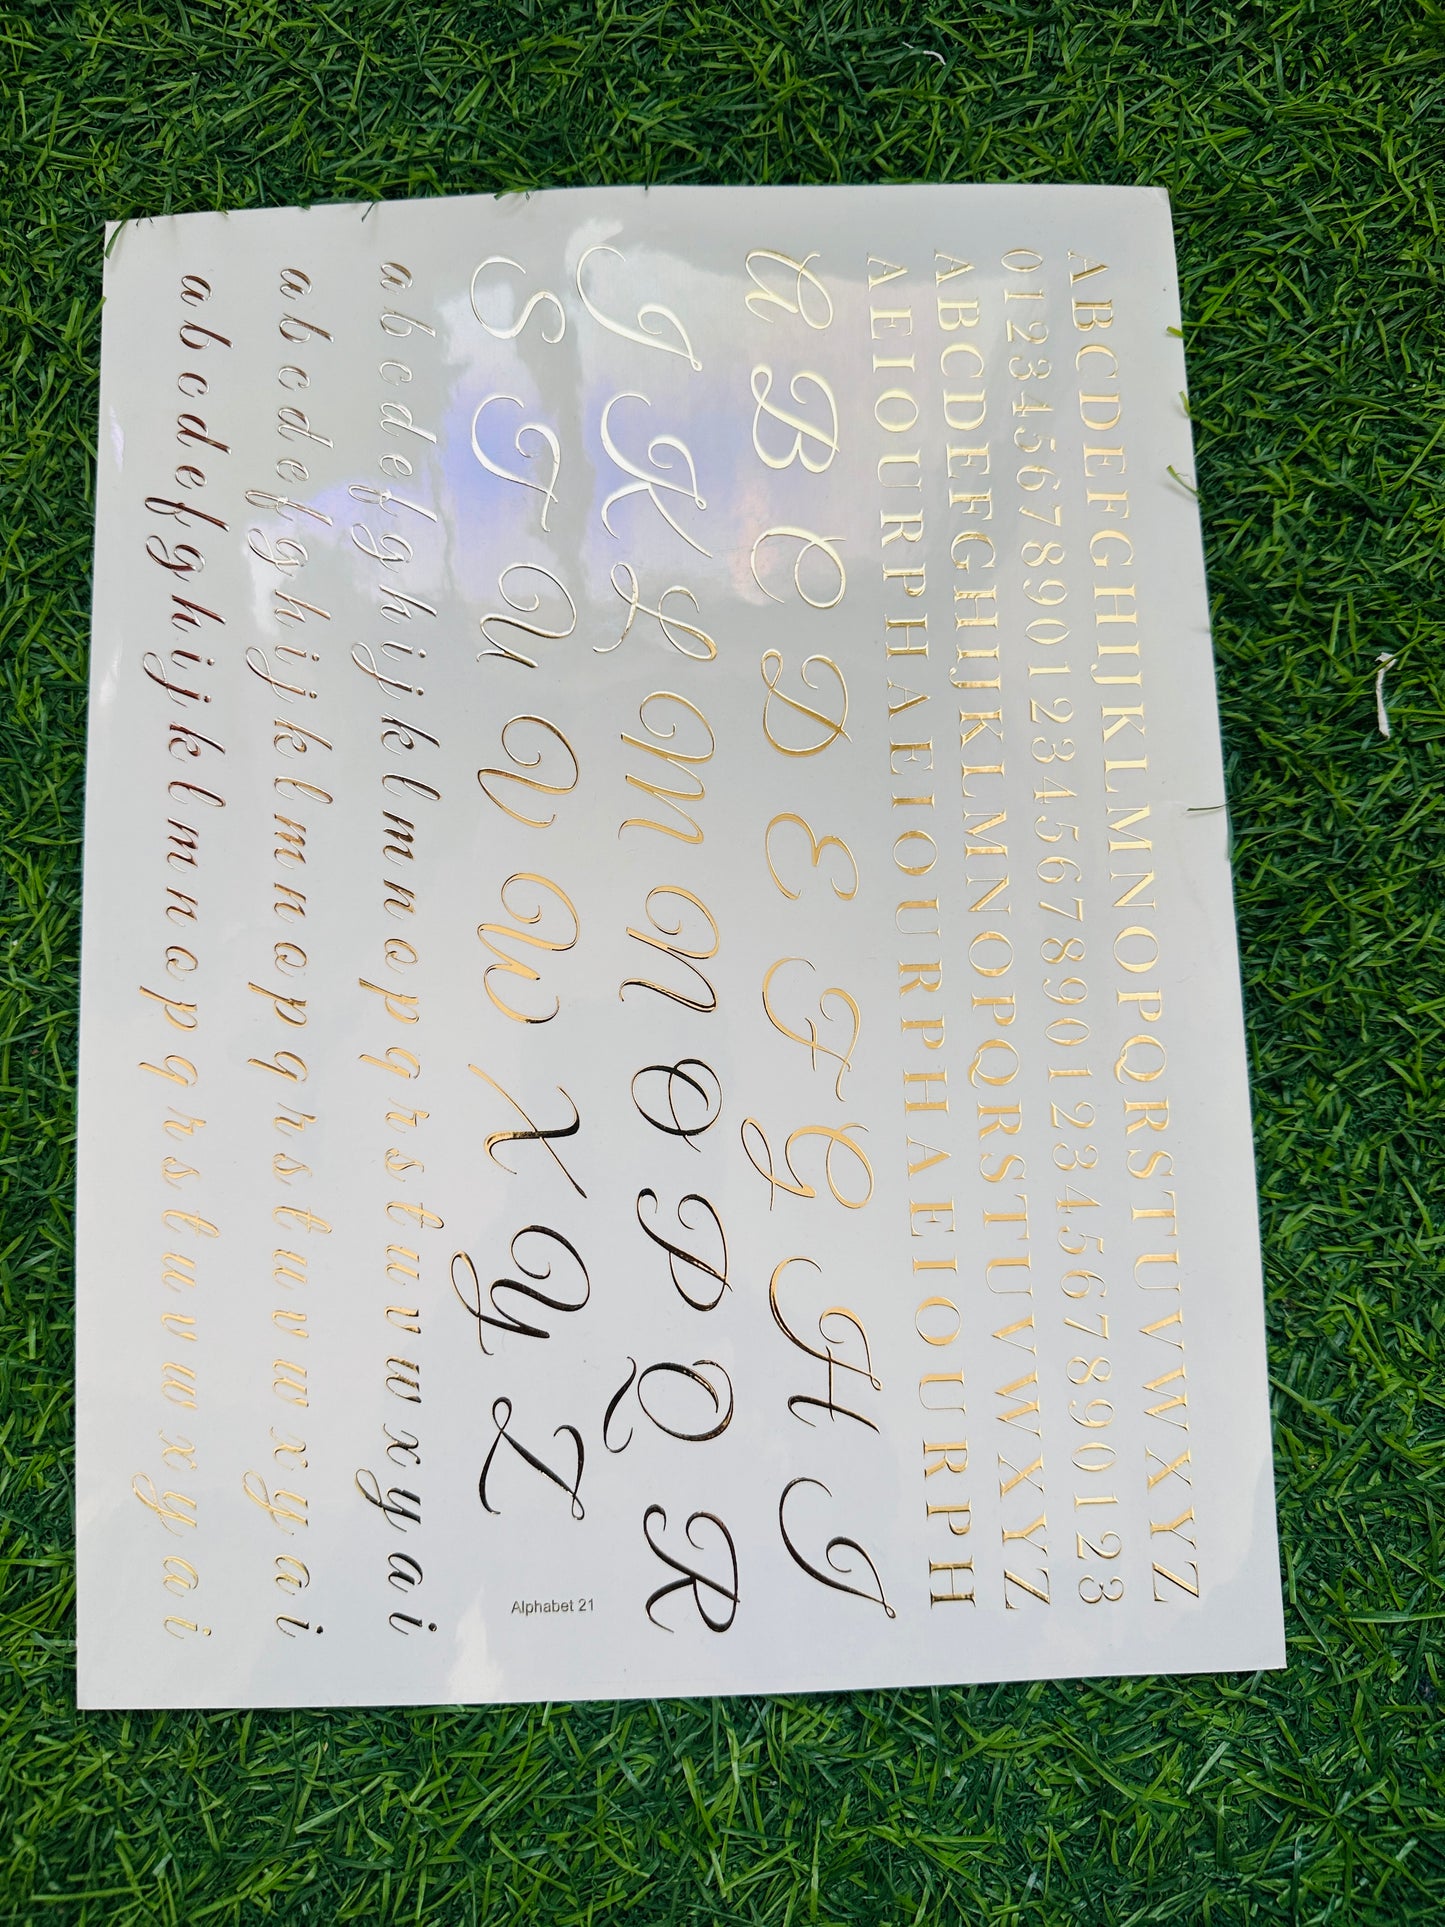 ABCDEFGHIJKLMNOPQRSTUVWXYZ
0123456789012345678901234567890123
ABCDEFGHIJKLMNOPQRSTUVWXYZ
AEIOURPHAEIOURPHAEIOURPH
A B C D E F G H I
J K L M N O P Q R
S T U V W X Y Z Alphabet 21
a b c d e f g h i j k l m n o p q r s t u v w x y a i
a b c d e f g h i j k l m n o p q r s t u v w x y a i
a b c d e f g h i j k l m n o p q r s t u v w x y a i